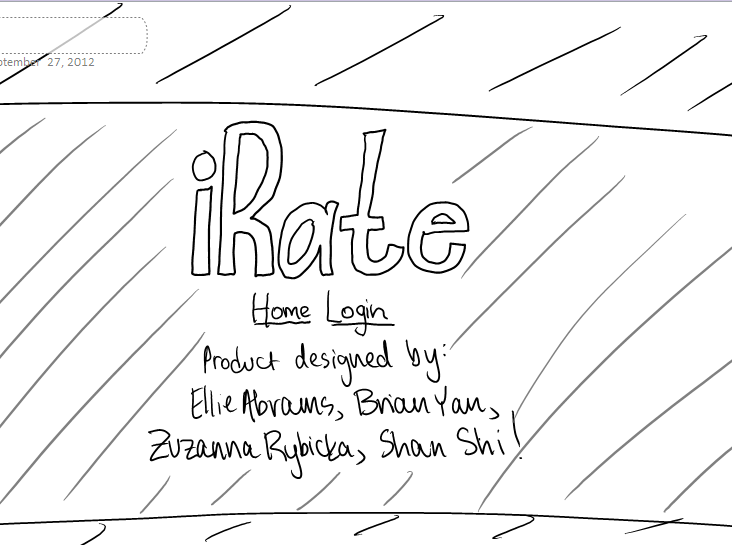 27, 2012
iRate
Home Login
Product designed by:
Ellie Abrams, Brian Yan,
Zuzanna Rybicka, Shan Shi!